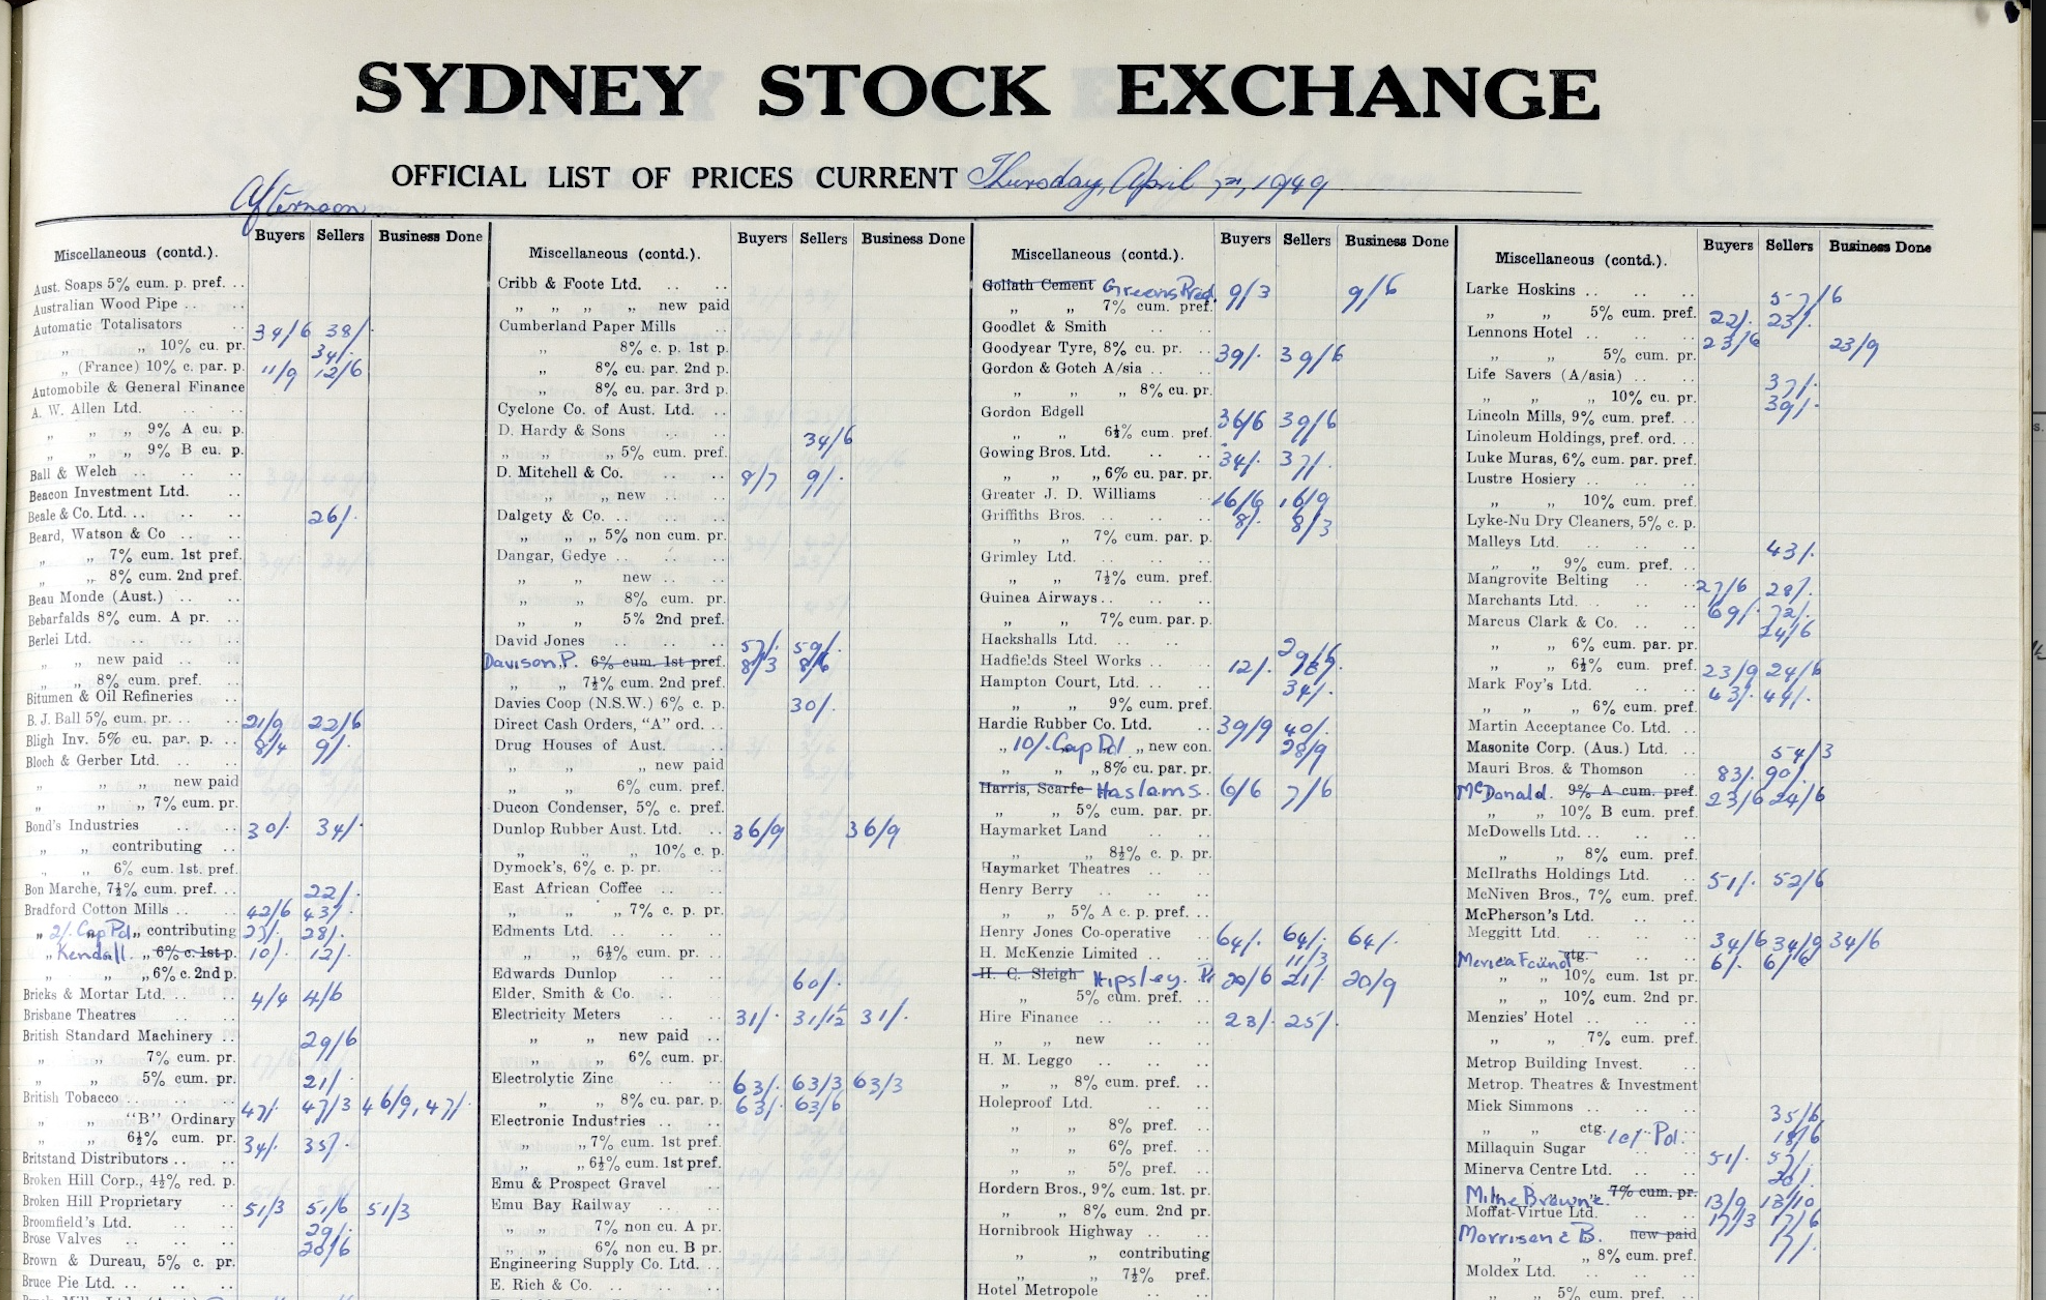 SYDNEY STOCK EXCHANGE
OFFICIAL LIST OF PRICES CURRENT Thursday, April 7th, 1949
Afternoon
Miscellaneous (contd.). Buyers Sellers Business Done
Aust. Soaps 5% cum. p. pref. ..
Australian Wood Pipe .. ..
Automatic Totalisators .. 34/6 38/.
„ „ 10% cu. pr. 34/.
„ (France) 10% c. par. p. 11/9 12/6
Automobile & General Finance
A. W. Allen Ltd. .. .. ..
„ „ „ 9% A cu. p.
„ „ „ 9% B cu. p.
Ball & Welch .. .. ..
Beacon Investment Ltd. ..
Beale & Co. Ltd. .. .. .. 26/.
Beard, Watson & Co .. ..
„ „ 7% cum. 1st pref.
„ „ 8% cum. 2nd pref.
Beau Monde (Aust.) .. ..
Bebarfalds 8% cum. A pr. ..
Berlei Ltd. .. .. ..
„ „ new paid .. ..
„ „ 8% cum. pref. ..
Bitumen & Oil Refineries ..
B. J. Ball 5% cum. pr. .. .. 21/9 22/6
Bligh Inv. 5% cu. par. p. .. 8/4 9/.
Bloch & Gerber Ltd. .. ..
„ „ „ new paid
„ „ „ 7% cum. pr.
Bond's Industries .. .. 30/. 34/.
„ „ contributing ..
„ „ 6% cum. 1st. pref.
Bon Marche, 7½% cum. pref. .. 22/.
Bradford Cotton Mills .. .. 42/6 43/.
„ 2/. Cap Pd „ contributing 23/. 28/.
„ Kendall „ 6% c. 1st p. 10/. 12/.
„ „ „ 6% c. 2nd p.
Bricks & Mortar Ltd. .. .. 4/4 4/6
Brisbane Theatres .. ..
British Standard Machinery .. 29/6
„ „ 7% cum. pr.
„ „ 5% cum. pr. 21/.
British Tobacco .. .. .. 47/. 47/3 46/9, 47/.
„ „ "B" Ordinary
„ „ 6½% cum. pr. 34/. 35/.
Britstand Distributors .. ..
Broken Hill Corp., 4½% red. p.
Broken Hill Proprietary .. 51/3 51/6 51/3
Broomfield's Ltd. .. .. 29/.
Brose Valves .. .. .. 28/6
Brown & Dureau, 5% c. pr.
Bruce Pie Ltd. .. .. ..
Miscellaneous (contd.). Buyers Sellers Business Done
Cribb & Foote Ltd. .. ..
„ „ „ „ new paid
Cumberland Paper Mills ..
„ 8% c. p. 1st p.
„ 8% cu. par. 2nd p.
„ 8% cu. par. 3rd p.
Cyclone Co. of Aust. Ltd. ..
D. Hardy & Sons .. .. 34/6
„ „ „ 5% cum. pref.
D. Mitchell & Co. .. .. 8/7 9/.
„ „ „ new .. ..
Dalgety & Co. .. .. ..
„ „ „ 5% non cum. pr.
Dangar, Gedye .. .. ..
„ „ new .. ..
„ „ 8% cum. pr.
„ „ 5% 2nd pref.
David Jones .. .. .. 57/. 59/.
Davison P. 6% cum. 1st pref. 8/3 8/6
„ „ 7½% cum. 2nd pref.
Davies Coop (N.S.W.) 6% c. p. 30/.
Direct Cash Orders, "A" ord. ..
Drug Houses of Aust. ..
„ „ „ new paid
„ „ 6% cum. pref.
Ducon Condenser, 5% c. pref.
Dunlop Rubber Aust. Ltd. .. 36/9 36/9
„ „ „ 10% c. p.
Dymock's, 6% c. p. pr. ..
East African Coffee .. ..
„ „ „ 7% c. p. pr.
Edments Ltd. .. .. ..
„ „ 6½% cum. pr. ..
Edwards Dunlop .. .. 60/.
Elder, Smith & Co. .. ..
Electricity Meters .. .. 31/. 31/1½ 31/.
„ „ new paid ..
„ „ 6% cum. pr.
Electrolytic Zinc .. .. 63/. 63/3 63/3
„ „ 8% cu. par. p. 63/. 63/6
Electronic Industries .. ..
„ „ 7% cum. 1st pref.
„ „ 6½% cum. 1st pref.
Emu & Prospect Gravel ..
Emu Bay Railway .. ..
„ „ 7% non cu. A pr.
„ „ 6% non cu. B pr.
Engineering Supply Co. Ltd. ..
E. Rich & Co. .. .. ..
Miscellaneous (contd.). Buyers Sellers Business Done
Goliath Cement Greens Prod. 9/3 9/6
„ „ 7% cum. pref.
Goodlet & Smith .. ..
Goodyear Tyre, 8% cu. pr. .. 39/. 39/6
Gordon & Gotch A/sia .. ..
„ „ „ 8% cu. pr.
Gordon Edgell .. .. 36/6 39/6
„ „ 6½% cum. pref.
Gowing Bros. Ltd. .. .. 34/. 37/.
„ „ „ 6% cu. par. pr.
Greater J. D. Williams .. 16/6 16/9
Griffiths Bros. .. .. .. 8/. 8/3
„ „ 7% cum. par. p.
Grimley Ltd. .. .. ..
„ „ 7½% cum. pref.
Guinea Airways .. .. ..
„ „ 7% cum. par. p.
Hackshalls Ltd. .. .. 29/6
Hadfields Steel Works .. .. 12/.
Hampton Court, Ltd. .. .. 34/.
„ „ 9% cum. pref.
Hardie Rubber Co. Ltd. .. 39/9 40/.
„ 10/. Cap Pd „ new con. 28/9
„ „ „ 8% cu. par. pr.
Harris, Scarfe Haslams. 6/6 7/6
„ „ 5% cum. par. pr.
Haymarket Land .. ..
„ „ 8½% c. p. pr.
Haymarket Theatres .. ..
Henry Berry .. .. ..
„ „ 5% A c. p. pref. ..
Henry Jones Co-operative .. 64/. 64/. 64/.
H. McKenzie Limited .. .. 11/3
H. C. Sleigh Hipsley. Pr 20/6 21/. 20/9
„ 5% cum. pref. ..
Hire Finance .. .. .. 23/. 25/.
„ „ new .. ..
H. M. Leggo .. .. ..
„ „ 8% cum. pref. ..
Holeproof Ltd. .. .. ..
„ „ 8% pref. ..
„ „ 6% pref. ..
„ „ 5% pref. ..
Hordern Bros., 9% cum. 1st. pr.
„ „ 8% cum. 2nd pr.
Hornibrook Highway .. ..
„ „ contributing
„ „ 7½% pref.
Hotel Metropole .. ..
Miscellaneous (contd.). Buyers Sellers Business Done
Larke Hoskins .. .. .. 57/6
„ „ 5% cum. pref. 22/. 23/.
Lennons Hotel .. .. .. 23/6 23/9
„ „ 5% cum. pr.
Life Savers (A/asia) .. .. 37/.
„ „ „ 10% cu. pr. 39/.
Lincoln Mills, 9% cum. pref. ..
Linoleum Holdings, pref. ord. ..
Luke Muras, 6% cum. par. pref.
Lustre Hosiery .. .. ..
„ „ 10% cum. pref.
Lyke-Nu Dry Cleaners, 5% c. p.
Malleys Ltd. .. .. .. 43/.
„ „ 9% cum. pref. ..
Mangrovite Belting .. .. 27/6 28/.
Marchants Ltd. .. .. .. 69/. 72/.
Marcus Clark & Co. .. .. 24/6
„ „ 6% cum. par. pr.
„ „ 6½% cum. pref. 23/9 24/6
Mark Foy's Ltd. .. .. 43/. 44/.
„ „ „ 6% cum. pref.
Martin Acceptance Co. Ltd. ..
Masonite Corp. (Aus.) Ltd. .. 54/3
Mauri Bros. & Thomson .. 83/. 90/.
McDonald. 9% A cum. pref. 23/6 24/6
„ „ 10% B cum. pref.
McDowells Ltd. .. .. ..
„ „ 8% cum. pref.
McIlraths Holdings Ltd. .. 51/. 52/6
McNiven Bros., 7% cum. pref.
McPherson's Ltd. .. ..
Meggitt Ltd. .. .. .. 34/6 34/9 34/6
Merica Found ctg. 6/. 6/6
„ „ 10% cum. 1st pr.
„ „ 10% cum. 2nd pr.
Menzies' Hotel .. .. ..
„ „ 7% cum. pref.
Metrop Building Invest. ..
Metrop. Theatres & Investment
Mick Simmons .. .. .. 35/6
„ „ ctg. 10/ Pd. 18/6
Millaquin Sugar .. .. 51/. 57/.
Minerva Centre Ltd. .. .. 20/.
Milne Browne. 7% cum. pr. 13/9 13/10
Moffat-Virtue Ltd. .. .. 17/3 17/6
Morrison & B. new paid 17/.
„ „ 8% cum. pref.
Moldex Ltd. .. .. ..
„ „ 5% cum. pref.